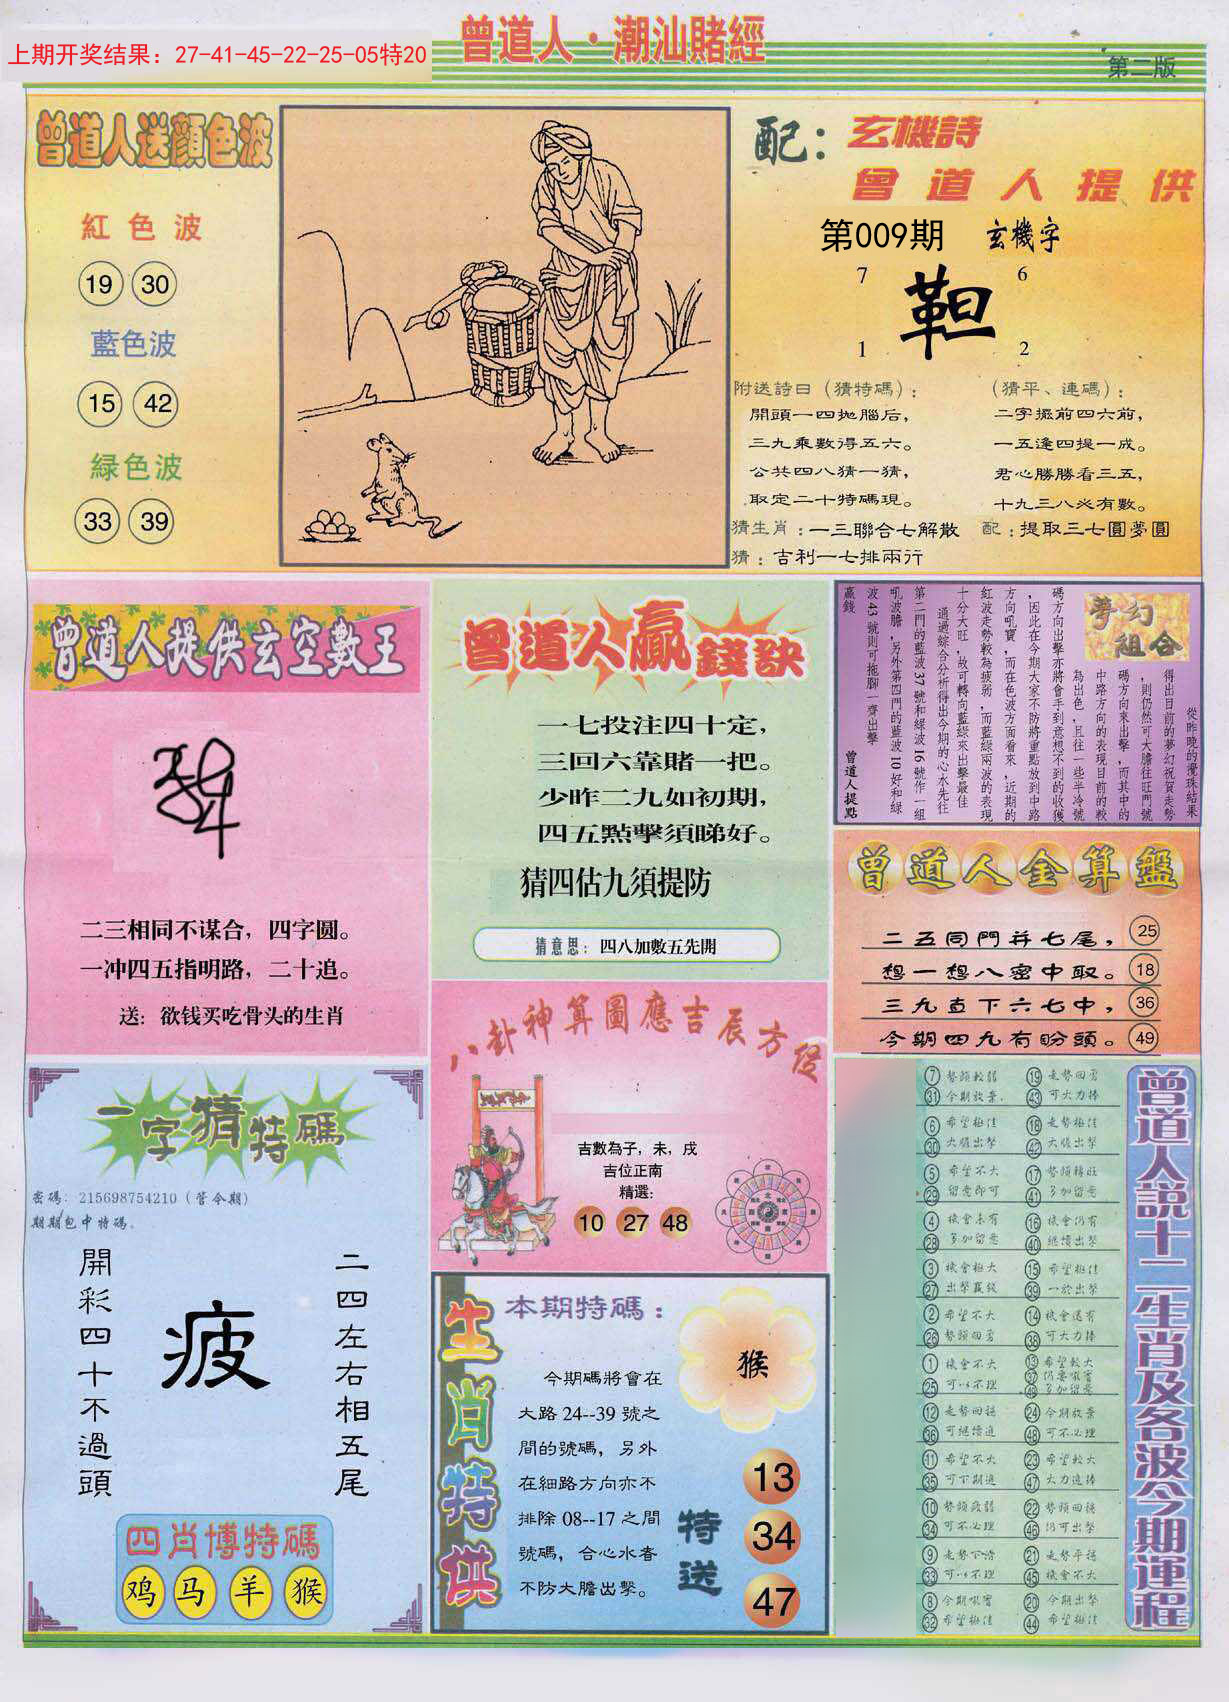 上期开奖结果：27-41-45-22-25-05特20
曾道人·潮汕賭經
第二版
曾道人送顏色波
紅色波
19 30
藍色波
15 42
緑色波
33 39
配：玄機詩
曾道人提供
第009期 玄機字
7 6
靼
1 2
附送詩曰（猜特碼）：
開頭一四拋腦后，
三九乘數得五六。
公共四八猜一猜，
取定二十特碼現。
（猜平、連碼）：
二字擺前四六前，
一五逢四提一成。
君心勝勝看三五，
十九三八必有數。
猜生肖：一三聯合七解散 配：提取三七圓夢圓
猜：吉利一七排兩行
曾道人提供玄空數王
二三相同不谋合，四字圆。
一冲四五指明路，二十追。
送：欲钱买吃骨头的生肖
曾道人贏錢訣
一七投注四十定，
三回六靠賭一把。
少昨二九如初期，
四五點擊須睇好。
猜四估九須提防
猜意思：四八加數五先開
夢幻組合
從昨晚的攪珠結果
得出目前的夢幻祝賀走勢
，則仍然可大膽往旺門號
碼方向來出擊，而其中的
中路方向的表現目前的較
為出色，且往一些半冷號
碼方向出擊亦將會手到意想不到的收獲
，因此在今期大家不防將重點放到中路
方向吼寶，而在色波方面看來，近期的
紅波走勢較為疲弱，而藍綠兩波的表現
十分大旺，故可轉向藍綠來出擊最佳
通過綜合分析得出今期的心水先往
第二門的藍波37號和綠波16號作一組
吼波膽，另外第四門的藍波10好和綠
波43號則可拖腳一齊出擊
贏錢
曾道人提點
曾道人金算盤
二五同門并七尾， 25
想一想八密中取。 18
三九直下六七中， 36
今期四九有盼頭。 49
一字猜特碼
密碼：215698754210（管令期）
期期包中特碼。
開彩四十不過頭
疲
二四左右相五尾
四肖博特碼
鸡 马 羊 猴
八卦神算圖應吉辰方位
吉數為子，未，戌
吉位正南
精選：
10 27 48
生肖特供
本期特碼：
猴
今期碼將會在
大路24--39號之
間的號碼，另外
在細路方向亦不
排除08--17之間
號碼，合心水者
不防大膽出擊。
特送
13
34
47
曾道人說十二生肖及各波今期運程
7 勢頭較弱 19 走勢回勇
31 今期放棄 43 可大力捧
6 希望極佳 18 走勢極佳
30 大膽出擊 42 大膽出擊
5 希望不大 17 勢頭轉旺
29 留意即可 41 多加留意
4 機會未有 16 機會仍有
28 多加留意 40 繼續出擊
3 機會極大 15 希望極佳
27 出擊贏錢 39 一於出擊
2 希望不大 14 機會還有
26 勢頭回勇 38 可大力捧
1 機會不大 13 希望較大
25 可以不理 37 仍要吼實
49 多加留意
12 走勢回穩 24 今期放棄
36 可繼續追 48 可不必理
11 希望不大 23 希望較大
35 可下期追 47 大力追捧
10 勢頭疲弱 22 勢頭回穩
34 可不必理 46 仍可出擊
9 走勢下滑 21 走勢平穩
33 可以不理 45 機會不大
8 今期吼實 20 今期出擊
32 希望極佳 44 希望極佳